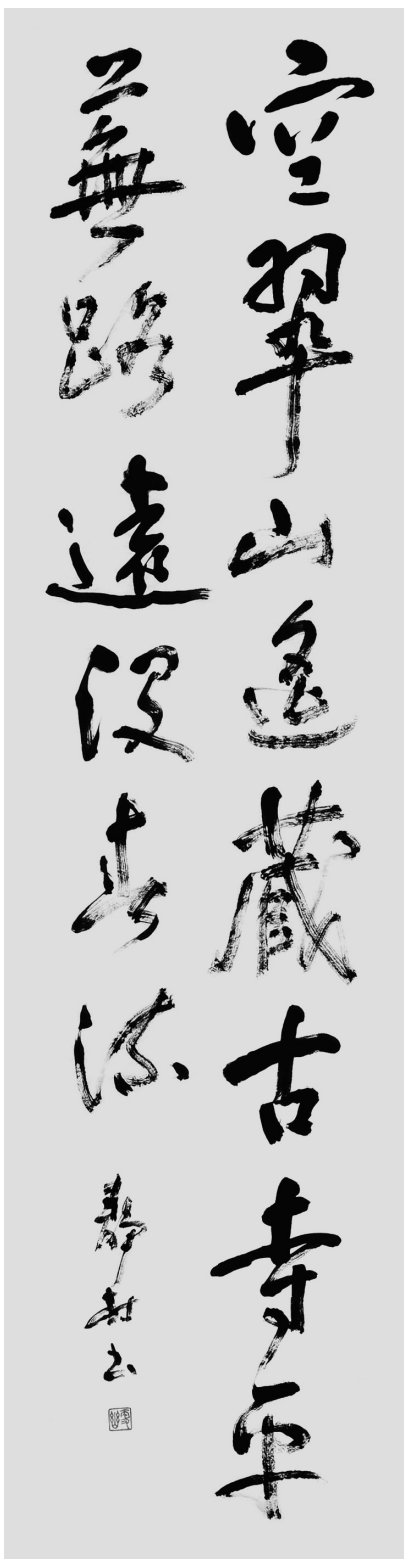 空翠山遙藏古寺平
蕪路遠沒春流
靜村書